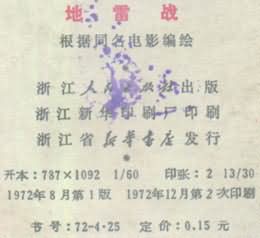 地雷战
根据同名电影编绘
浙江人民出版社出版
浙江新华印刷厂印刷
浙江省新华书店发行
开本:787×1092 1/60 印张:2 13/30
1972年8月第1版 1972年12月第2次印刷
书号:72-4-25 定价:0.15元